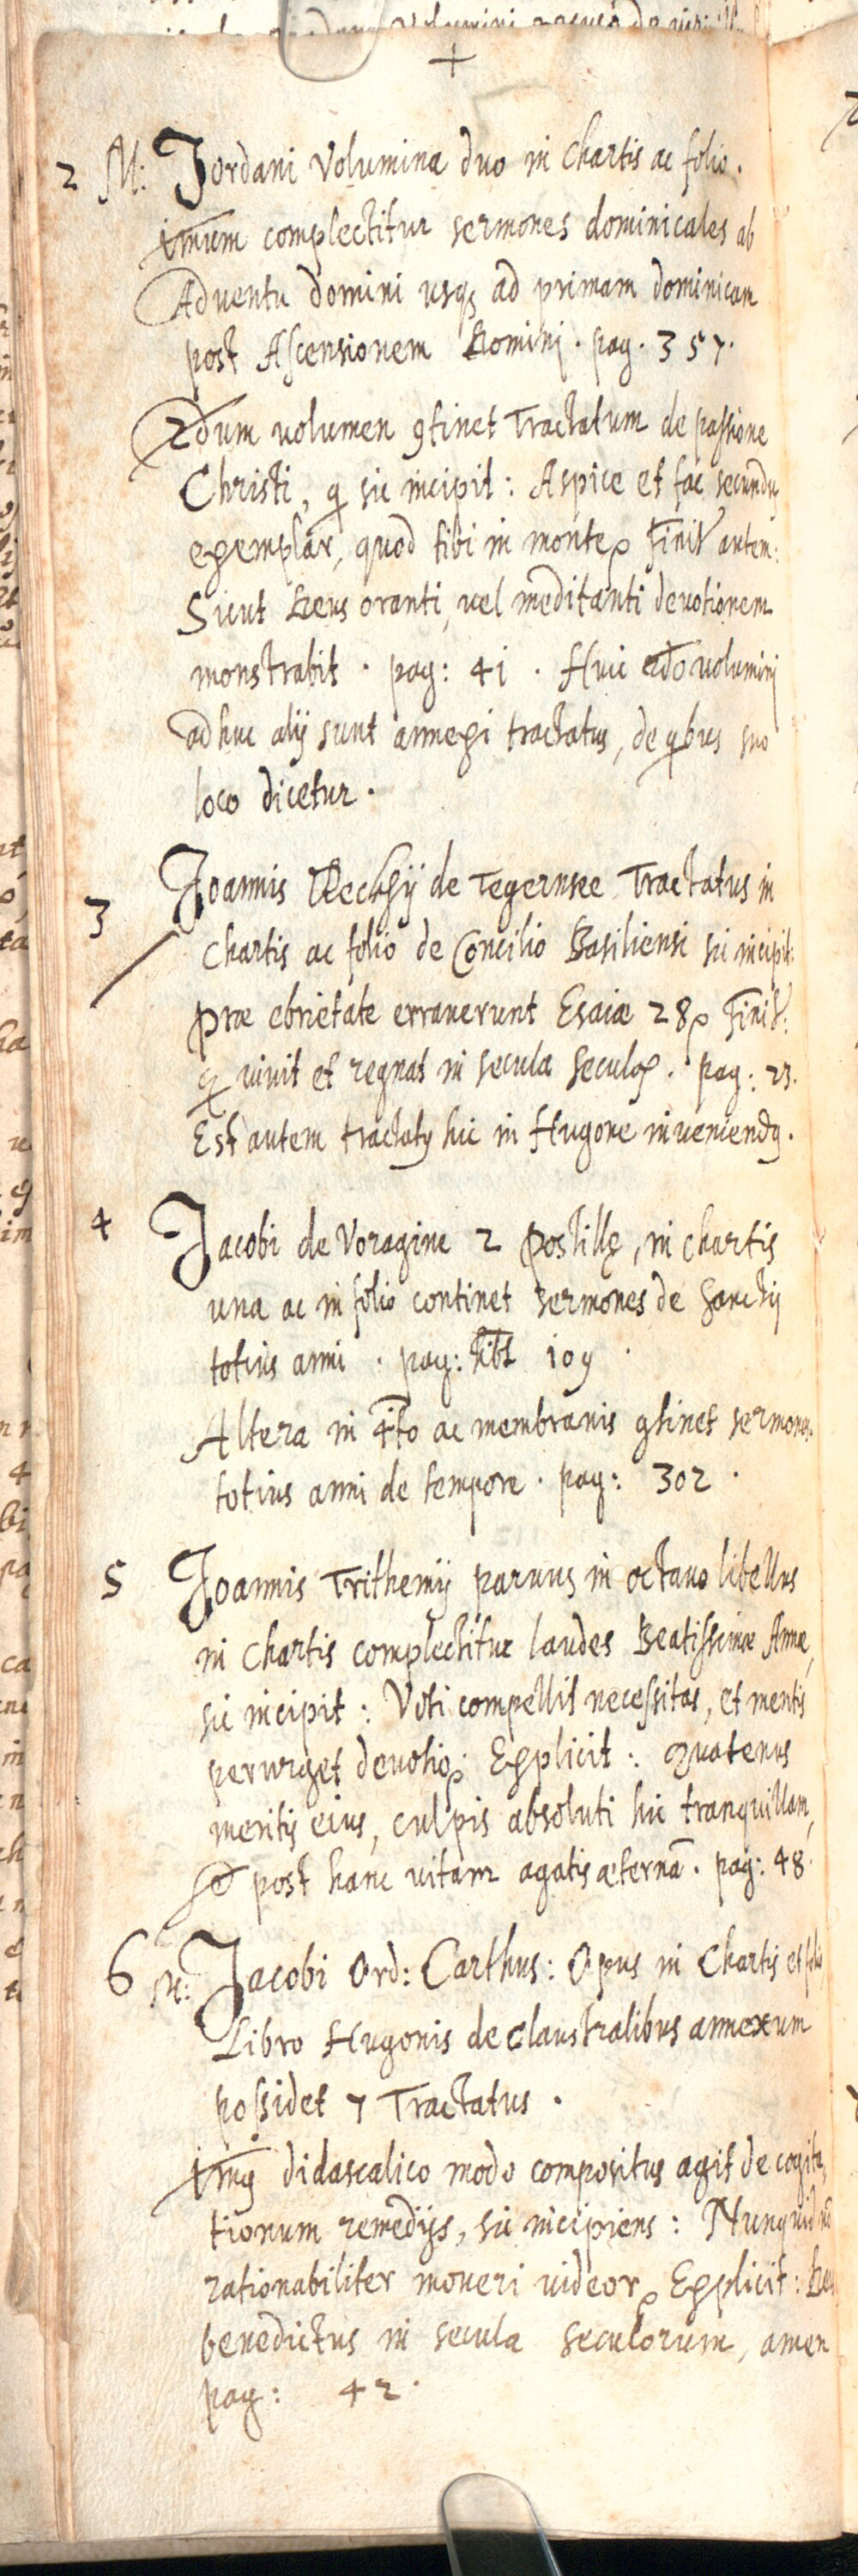 +
2 M: Jordani Volumina duo in chartis ac folio.
1mum complectitur sermones dominicales ab
Adventu domini usq, ad primam dominicam
post Ascensionem Domini. pag. 357.
2dum volumen gtinet Tractatum de passione
Christi, q sic incipit: Aspice et fac secundu
exemplar, quod tibi in monte Finit autem:
Sicut Deus oranti, vel meditanti devotionem
monstrabit. pag: 41. Huic 2do volumini
adhuc alij sunt annexi tractatus, de qbus suo
loco dicetur.
3 Joannis de Tegernsee Tractatus in
chartis ac folio de Concilio Basiliensi sic incipit:
Prae ebrietate erraverunt Esaiae 28 Finit:
q vivit et regnat in secula seculoȝ. pag: 23.
Est autem tractatȝ hic in Hugone inveniendȝ.
4 Jacobi de Voragine 2 postillę, in chartis
una ac in folio continet sermones de Sanctis
totius anni. pag: 109.
Altera in 4to ac membranis gtinet sermones
totius anni de tempore. pag: 302.
5 Joannis Trithemij parvus in octavo libellus
in chartis complectitur laudes Beatissimae Annae,
sic incipit: Voti compellit necessitas, et mentis
perurget devotio: Explicit: Quatenus
meritis eius, culpis absoluti hic tranquillam,
et post hanc vitam agatis aeternā. pag: 48.
6 M: Jacobi Ord: Carthus: Opus in Chartis et folio
Libro Hugonis de Claustralibus annexum
possidet 7 Tractatus.
1mȝ didascalico modo compositus agit de cogita,
tionum remedijs, sic incipiens: Nunquid
rationabiliter moveri videor Explicit:
benedictus in secula seculorum, amen
pag: 42.